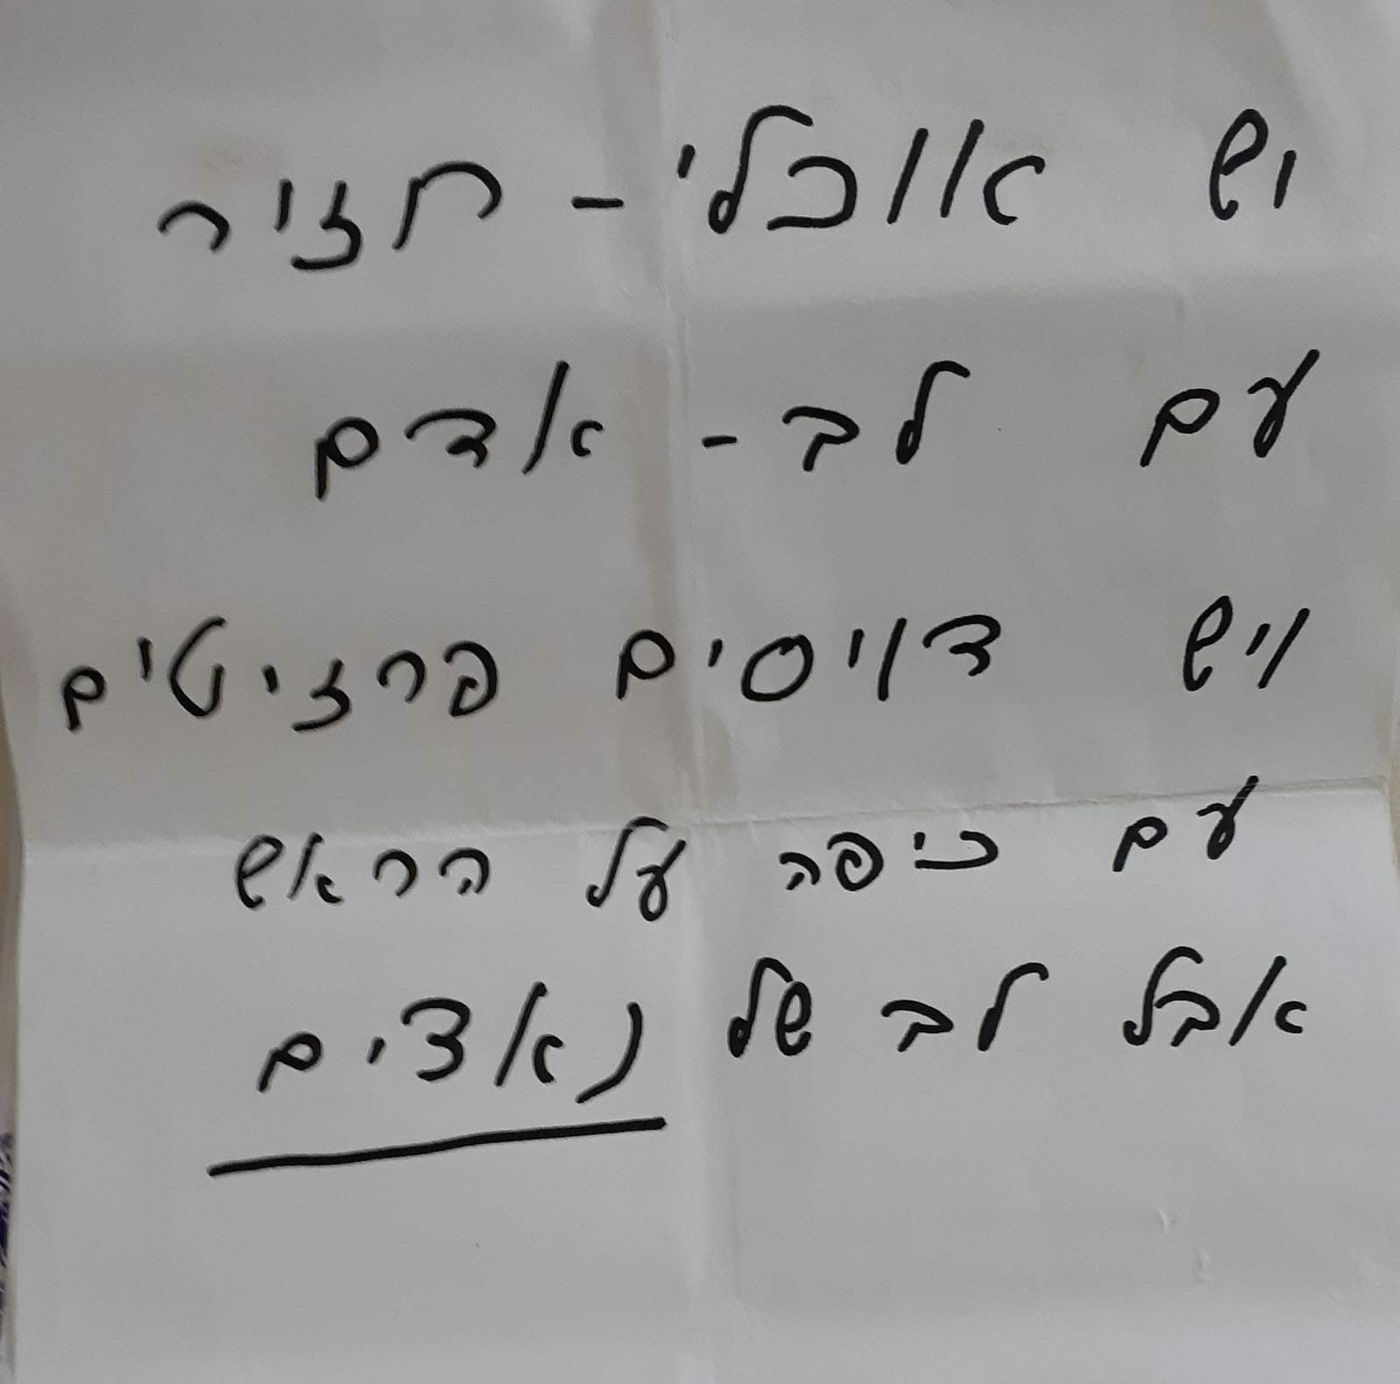 יש אוכלי - חזיר
עם לב - אדם
ויש דויסים פרזיטים
עם כיפה על הראש
אבל לב של נאצים